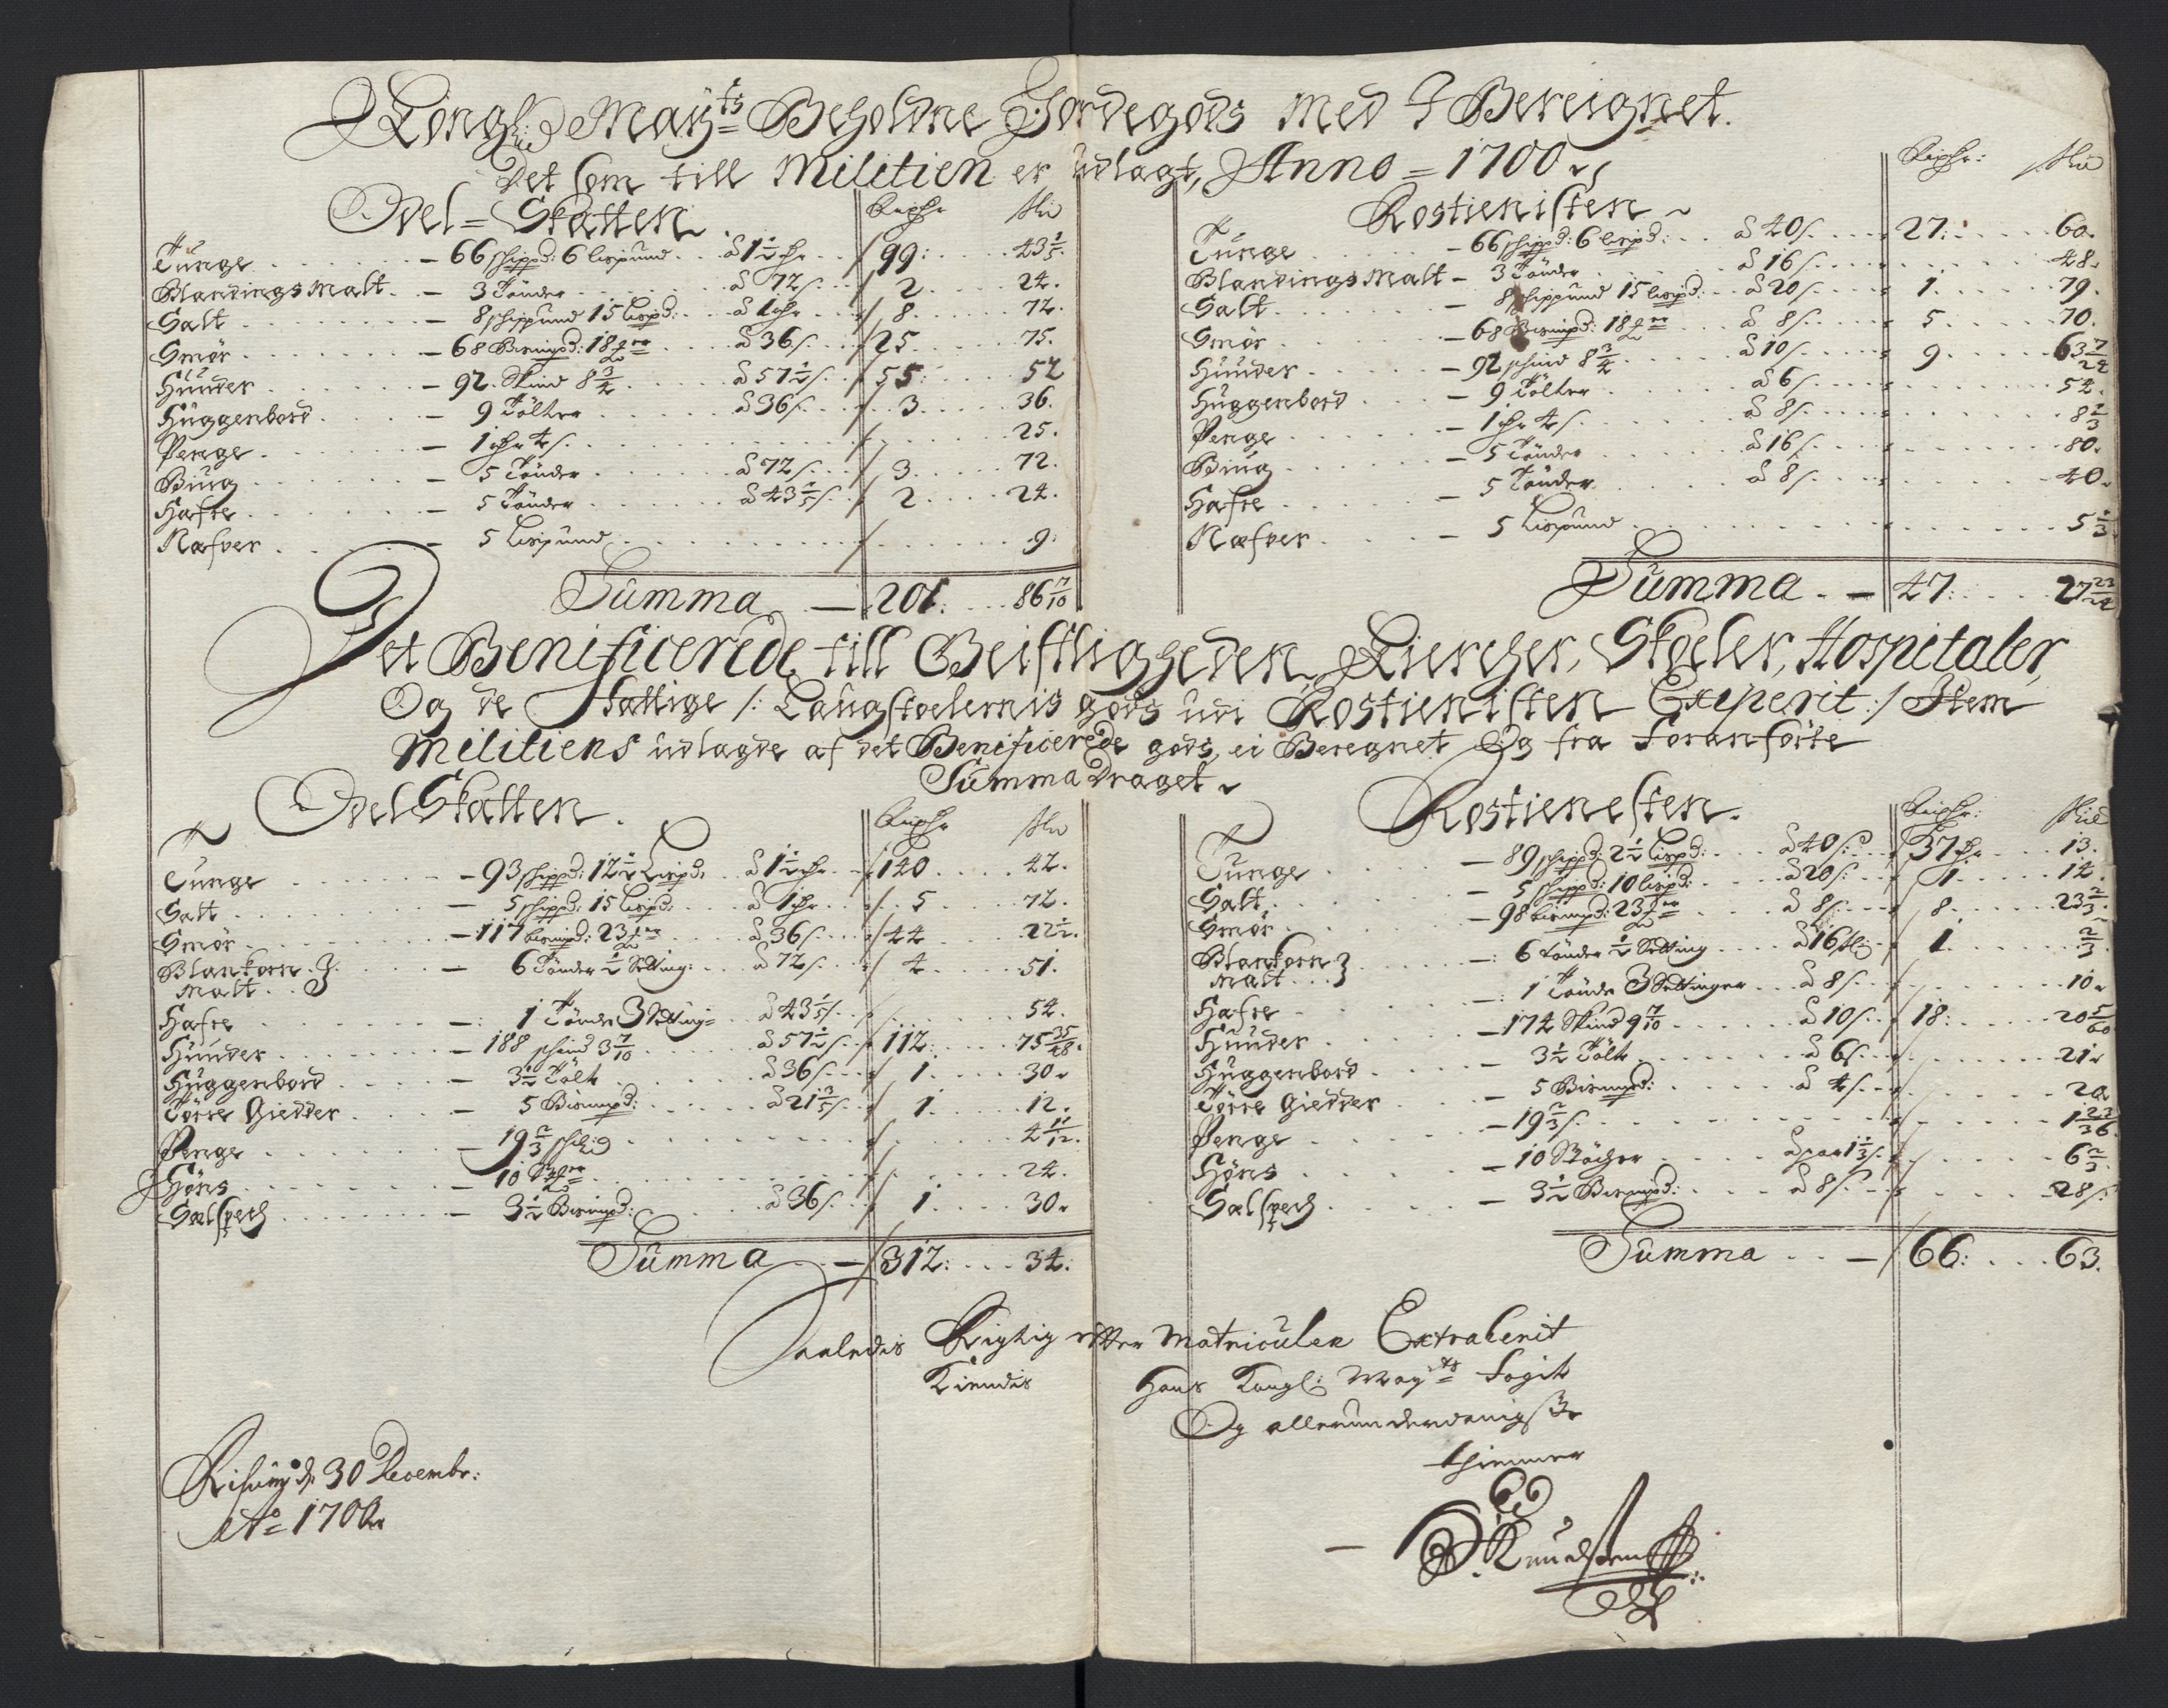 Kongl: Mayts Beholdne Jordegods Med I Bereignet.
Det som till Militien er udlagt, Anno = 1700
Odel = Skatten.
Rixdr skid
Tunge - 66 schippd: 6 lispund à 1½ dr 99: 43 1/5
Blandings Malt - 3 Tönder à 72 s. 2. 24.
Salt - 8 schippund 15 Lispd: à 1 rdr 8. 72.
Smør - 68 Bismpd: 18 à 36 s. 25. 75.
Huuder - 92. Skind 8¾ à 57½ s. 55: 52
Huggenbord - 9 Tölter à 36 s. 3. 36.
Penge - 1 rdr 4 s. 25.
Biug - 5 Tönder à 72 s. 3. 72.
Hafre - 5 Tönder à 43 1/5 s. 2. 24.
Næfver - 5 Lispund 9.
Summa - 201. 86 7/10
Rostienisten
Rixdr: skid
Tunge - 66 schippd: 6 lispd: à 40 s. 27: 60.
Blandings Malt - 3 Tönder à 16 s. 48.
Salt - 8 schippund 15 lispd: à 20 s. 1. 79.
Smør - 68 Bismpd: 18 à 8 s. 5. 70.
Huuder - 92 schind 8¾ à 10 s. 9. 63 7/24
Huggenbord - 9 Tölter à 6 s. 54.
Penge - 1 rdr 4 s. à 8 s. 8⅓
Biug - 5 Tönder à 16 s. 80.
Hafre - 5 Tönder à 8 s. 40.
Næfver - 5 Lispund 5⅓
Summa - 47: 27 23/24
Det Benificerede till Geistligheden, Kiercher, Skoeler, Hospitaler,
Og de Fattige /: Laugstoelernis gods udi Rostienisten Exiperit :/ Item
Militiens udlagde af det Benificerede gods, ei Beregnet Og fra foranförte
Summa Draget
Odel Skatten.
Rixdr skd
Tunge - 93 schippd: 12½ Lispd: à 1½ dr 140 42.
Salt - 5 schippd: 15 lispd: à 1 dr 5 72.
Smør - 117 bismpd: 23 à 36 s. 44 22½.
Blankorn
Malt - 6 Tönder ½ Setting: à 72 s. 4. 51.
Hafre - 1 Tönde 3 Setting à 43 1/5 s. 54.
Huuder - 188 schind 3 7/10 à 57½ s. 112: 75 35/48.
Huggenbord - 3½ Tölt à 36 s. 1. 30
Törre Giedder - 5 Bismpd: à 21 3/5 s. 1. 12.
Penge - 19⅔ schil: 4 11/12.
Høns - 10 24.
Sælspech - 3½ Bismpd: à 36 s. 1. 30
Summa - 312: 34:
Rostienesten.
Rixdr: skid
Tunge - 89 schippd: 2½ Lispd: à 40 s. 37 dr 13.
Salt - 5 schippd: 10 lispd: à 20 s. 1. 14.
Smør - 98 bismpd: 23 à 8 s. 8. 23⅔.
Blankorn
Malt - 6 tönder ½ Setting à 16 sk 1. ⅔.
Hafre - 1 Tönde 3 Settinger à 8 s. 10
Huuder - 174 Skind 9 7/10 à 10 s. 18: 20 5/60
Huggenbord - 3½ Tölt à 6 s. 21
Törre Giedder - 5 Bismpd: à 4 s. 20
Penge - 19⅔ s. 1 23/36.
Høns - 10 Stöcher à par 1⅓ s. 6⅔.
Sælspech - 3½ Bismpd: à 8 s. 28 s.
Summa - 66: 63.
Saaledis Rigtig efter Matriculen Extraherit
Kiendis Hans Kongl: Mayts fogit
Og allerunderdanigste
thienner
Knudsen
d: 30 Decembr:
Ao 1700